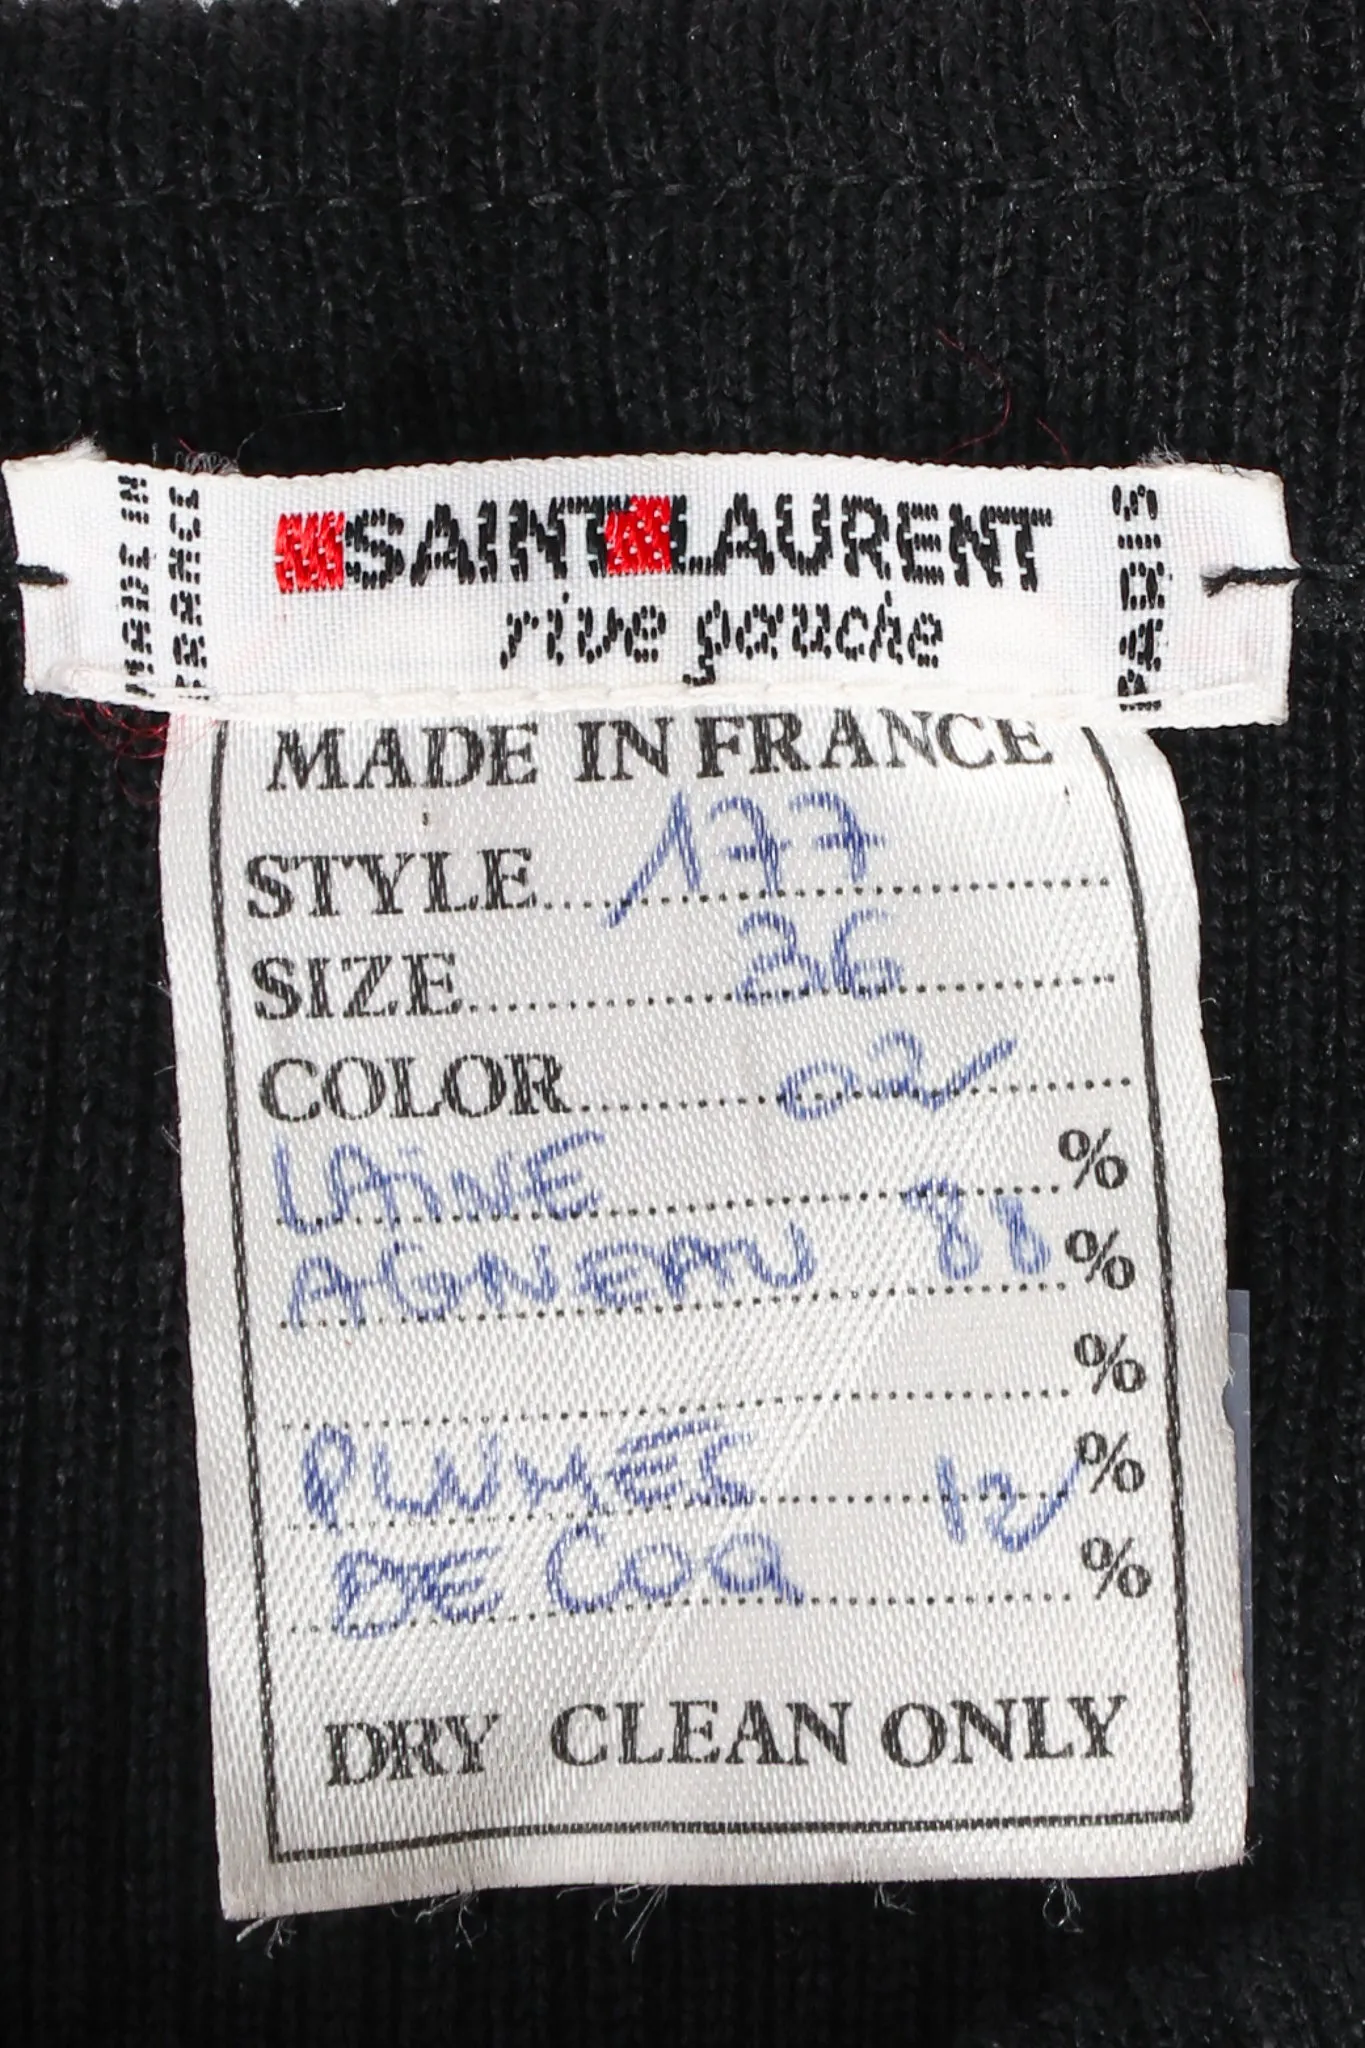 MADE IN
FRANCE
SAINT LAURENT
rive gauche
PARIS
MADE IN FRANCE
STYLE 177
SIZE 36
COLOR 02
LAINE %
AGNEAU 88 %
%
PLUMES 12 %
DE COQ %
DRY CLEAN ONLY